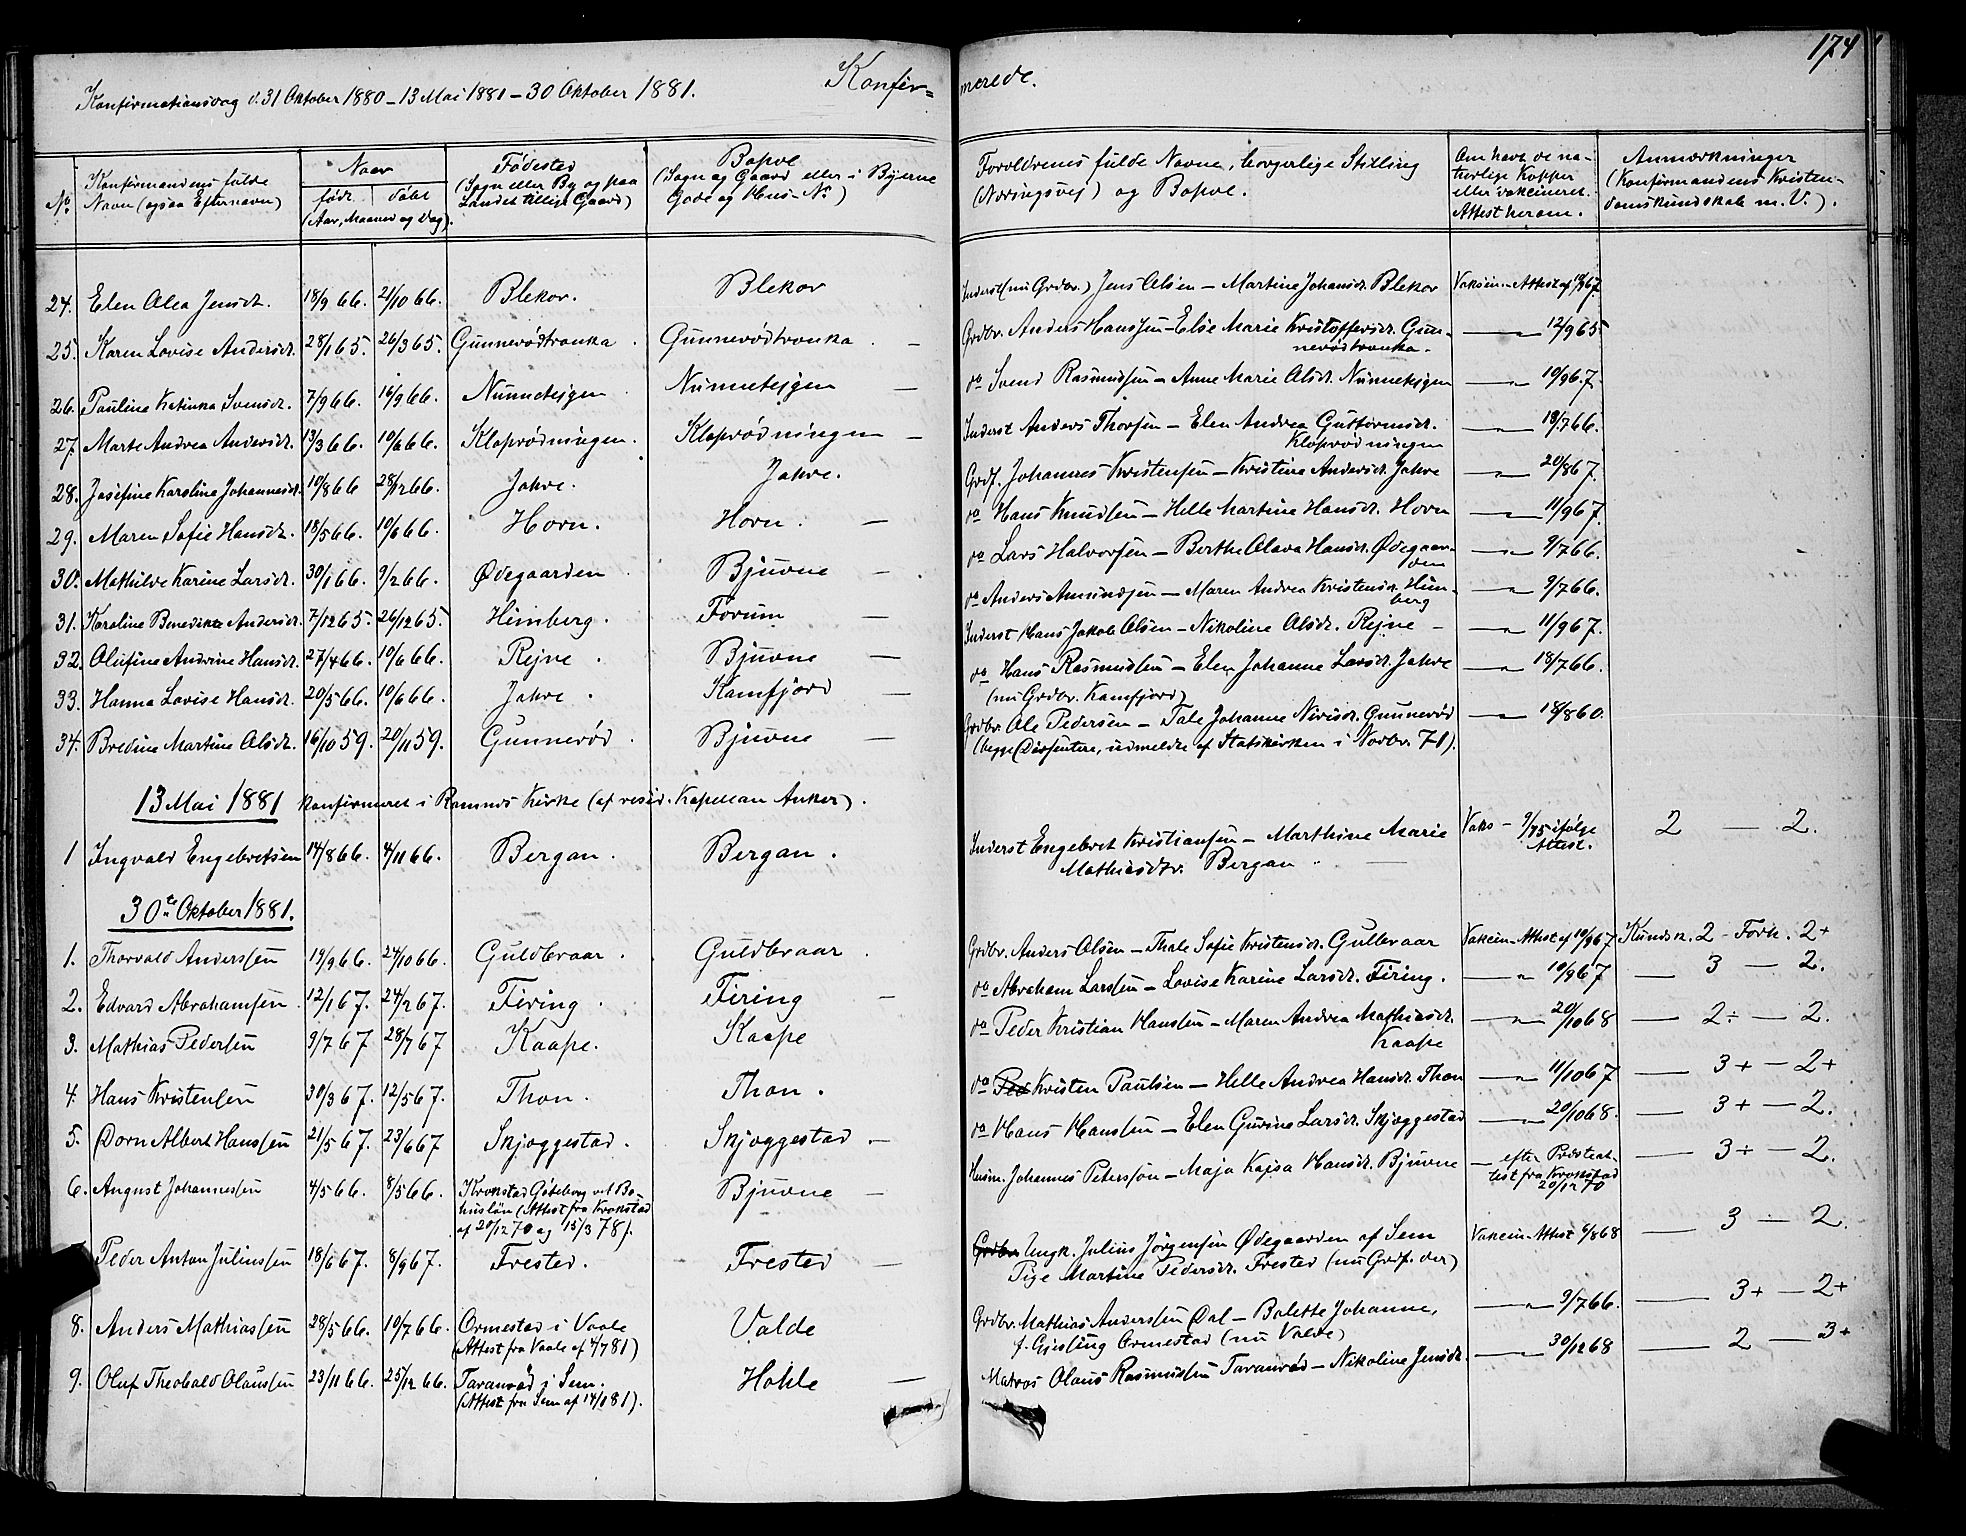 174
Konfirmationsdag d. 31 Oktober 1880 – 13 Mai 1881 – 30 Oktober 1881. Konfir= merede.
No. Konfirmandens fulde Navn (ogsaa Efternavn)
Naar født døbt (Aar, Maaned og Dag).
Fødested (Sogn eller By og paa Landet tillige Gaard)
Bopæl (Sogn og Gaard eller i Byerne Gade og Hus-No)
Forældrenes fulde Navne, borgerlige Stilling (Næringsvej) og Bopæl.
Om havt de naturlige Kopper eller vakcineret. Attest herom.
Anmærkninger (Konfirmandens Kristendomskundskab m. V.).
24. Elen Olea Jensdt. 18/9 66. 21/10 66. Blekor. Blekor Inderst (nu Grdbr.) Jens Olsen – Martine Johansdt. Blekor Vaksin.-Attest af 19/8 67.
25. Karen Lovise Andersdt. 28/1 65. 26/3 65. Gunnerødtranka. Gunnerødtranka. – Grdbr. Anders Hanssen – Else Marie Kristoffersdt. Gun-
nerødtranka. —"— 12/9 65
26. Pauline Katinka Svensdt. 7/9 66. 16/9 66. Nunnetejgen Nunnetejgen — do Svend Rasmussen – Anne Marie Olsdt. Nunnetejgen —"— 10/9 67.
27. Marte Andrea Andersdt. 13/3 66. 10/6 66. Kloprødningen. Kloprødningen – Inderst Anders Thorsen – Elen Andrea Guttormsdt.
Kloprødningen —"— 19/7 66.
28. Josefine Karoline Johannesdt. 10/8 66 28/12 66. Jahre. Jahre. Grdf. Johannes Kristensen – Kristine Andersdt. Jahre —"— 20/8 67.
29. Maren Sofie Hansdt. 18/5 66. 10/6 66. Horn. Horn. — do Hans Knudsen – Helle Martine Hansdt. Horn —"— 11/9 67.
30. Mathilde Karine Larsdt. 30/1 66. 9/2 66. Ødegaarden Bjuerne —. do Lars Halvorsen – Berthe Olava Hansdt. Ødegaar-
den —"— 9/7 66.
31. Karoline Benedikte Andersdt. 7/12 65. 26/12 65. Heimberg. Forum — do Anders Amundsen – Maren Andrea Kristensdt. Heim-
berg —"— 9/7 66.
32. Olufine Andrine Hansdt. 27/4 66. 10/6 66. Rejne. Bjuerne — Inderst Hans Jakob Olsen – Nikoline Olsdt. Rejne – —"— 11/9 67.
33. Hanna Lovise Hansdt. 20/5 66. 10/6 66. Jahre. Kamfjord — do Hans Rasmussen – Elen Johanne Larsdt. Jahre
(nu Grdbr. Kamfjord) —"— 18/7 66.
34. Bredine Martine Olsdt. 16/10 59. 20/11 59. Gunnerød. Bjuerne — Grdbr. Ole Pedersen – Tale Johanne Nirisdt. Gunnerød
(begge Dissentere, udmeldte af Statskirken i Novbr. 71). —"— 18/8 60.
13 Mai 1881 konfirmeret i Ramnes Kirke (af resid. Kapellan Anker).
1 Ingvald Engebretsen 14/8 66. 4/11 66. Bergan. Bergan. Inderst Engebret Kristiansen – Marthine Marie
Mathiasdtr. Bergan Vaks – 9/75 ifølge
Attest. 2 — 2.
30te Oktober 1881.
1. Thorvald Anderssen 19/9 66. 24/10 66. Guldbraar. Guldbraar. Grdbr. Anders Olsen – Thale Sofie Kristensdt. Gulbraar Vakcin.-Attest af 10/9 67 Kundsk. 2 - Forh. 2+
2. Edvard Abrahamsen 12/1 67. 24/2 67. Firing. Firing – do Abraham Larssen – Lovise Karine Larsdt. Firing. —"— 10/9 67 — 3 — 2.
3. Mathias Pedersen 9/7 67 28/7 67 Kaape. Kaape do Peder Kristian Hansen – Maren Andrea Mathiasdt.
Kaape —"— 20/10 68 — 2÷ — 2.
4. Hans Kristensen 30/3 67. 12/5 67. Thon. Thon. do Ped Kristen Paulsen – Helle Andrea Hansdt. Thon —"— 11/10 67 — 3+ — 2+
5. Dorn Albert Hanssen 21/5 67. 23/6 67 Skjæggestad. Skjæggestad. – do Hans Hanssen – Elen Gurine Larsdt. Skjæggestad —"— 20/10 68. — 3+ — 2.
6. August Johannessen 4/5 66. 8/5 66. Krokstad Gøteborg ved Bo-
huslän (Attest fra Krokstad
af 20/12 70 og 15/3 78). Bjuerne — Husm. Johannes Peterson – Maja Kajsa Hansdt. Bjuerne — efter Præsteat-
test fra Krokstad
20/12 70 — 3÷ — 2.
Peder Anton Juliussen 18/6 67. 8/9 67. Frested. Frested — Grdbr Ungk. Julius Jørgensen Ødegaarden af Sem
Pige Martine Pedersdt. Frested (nu Grdf. der) Vakcin-Attest 6/8 68 — 3 — 2.
8. Anders Mathiassen 28/5 66. 10/7 66. Ormestad i Vaale
(Attest fra Vaale af 4/7 81) Valde Grdbr. Mathias Anderssen Dal – Bolette Johanne,
f. Gjisling Ormestad (nu Valde) —"— 9/7 66. — 3+ — 2+
9. Oluf Theobald Olaussen 23/11 66. 25/12 66. Taranrød i Sem.
(Attest fra Sem af 14/1 81). Hohle — Matros Olaus Rasmussen Taranrød – Nikoline Jensdt. —"— 30/12 68 — 2 — 3+